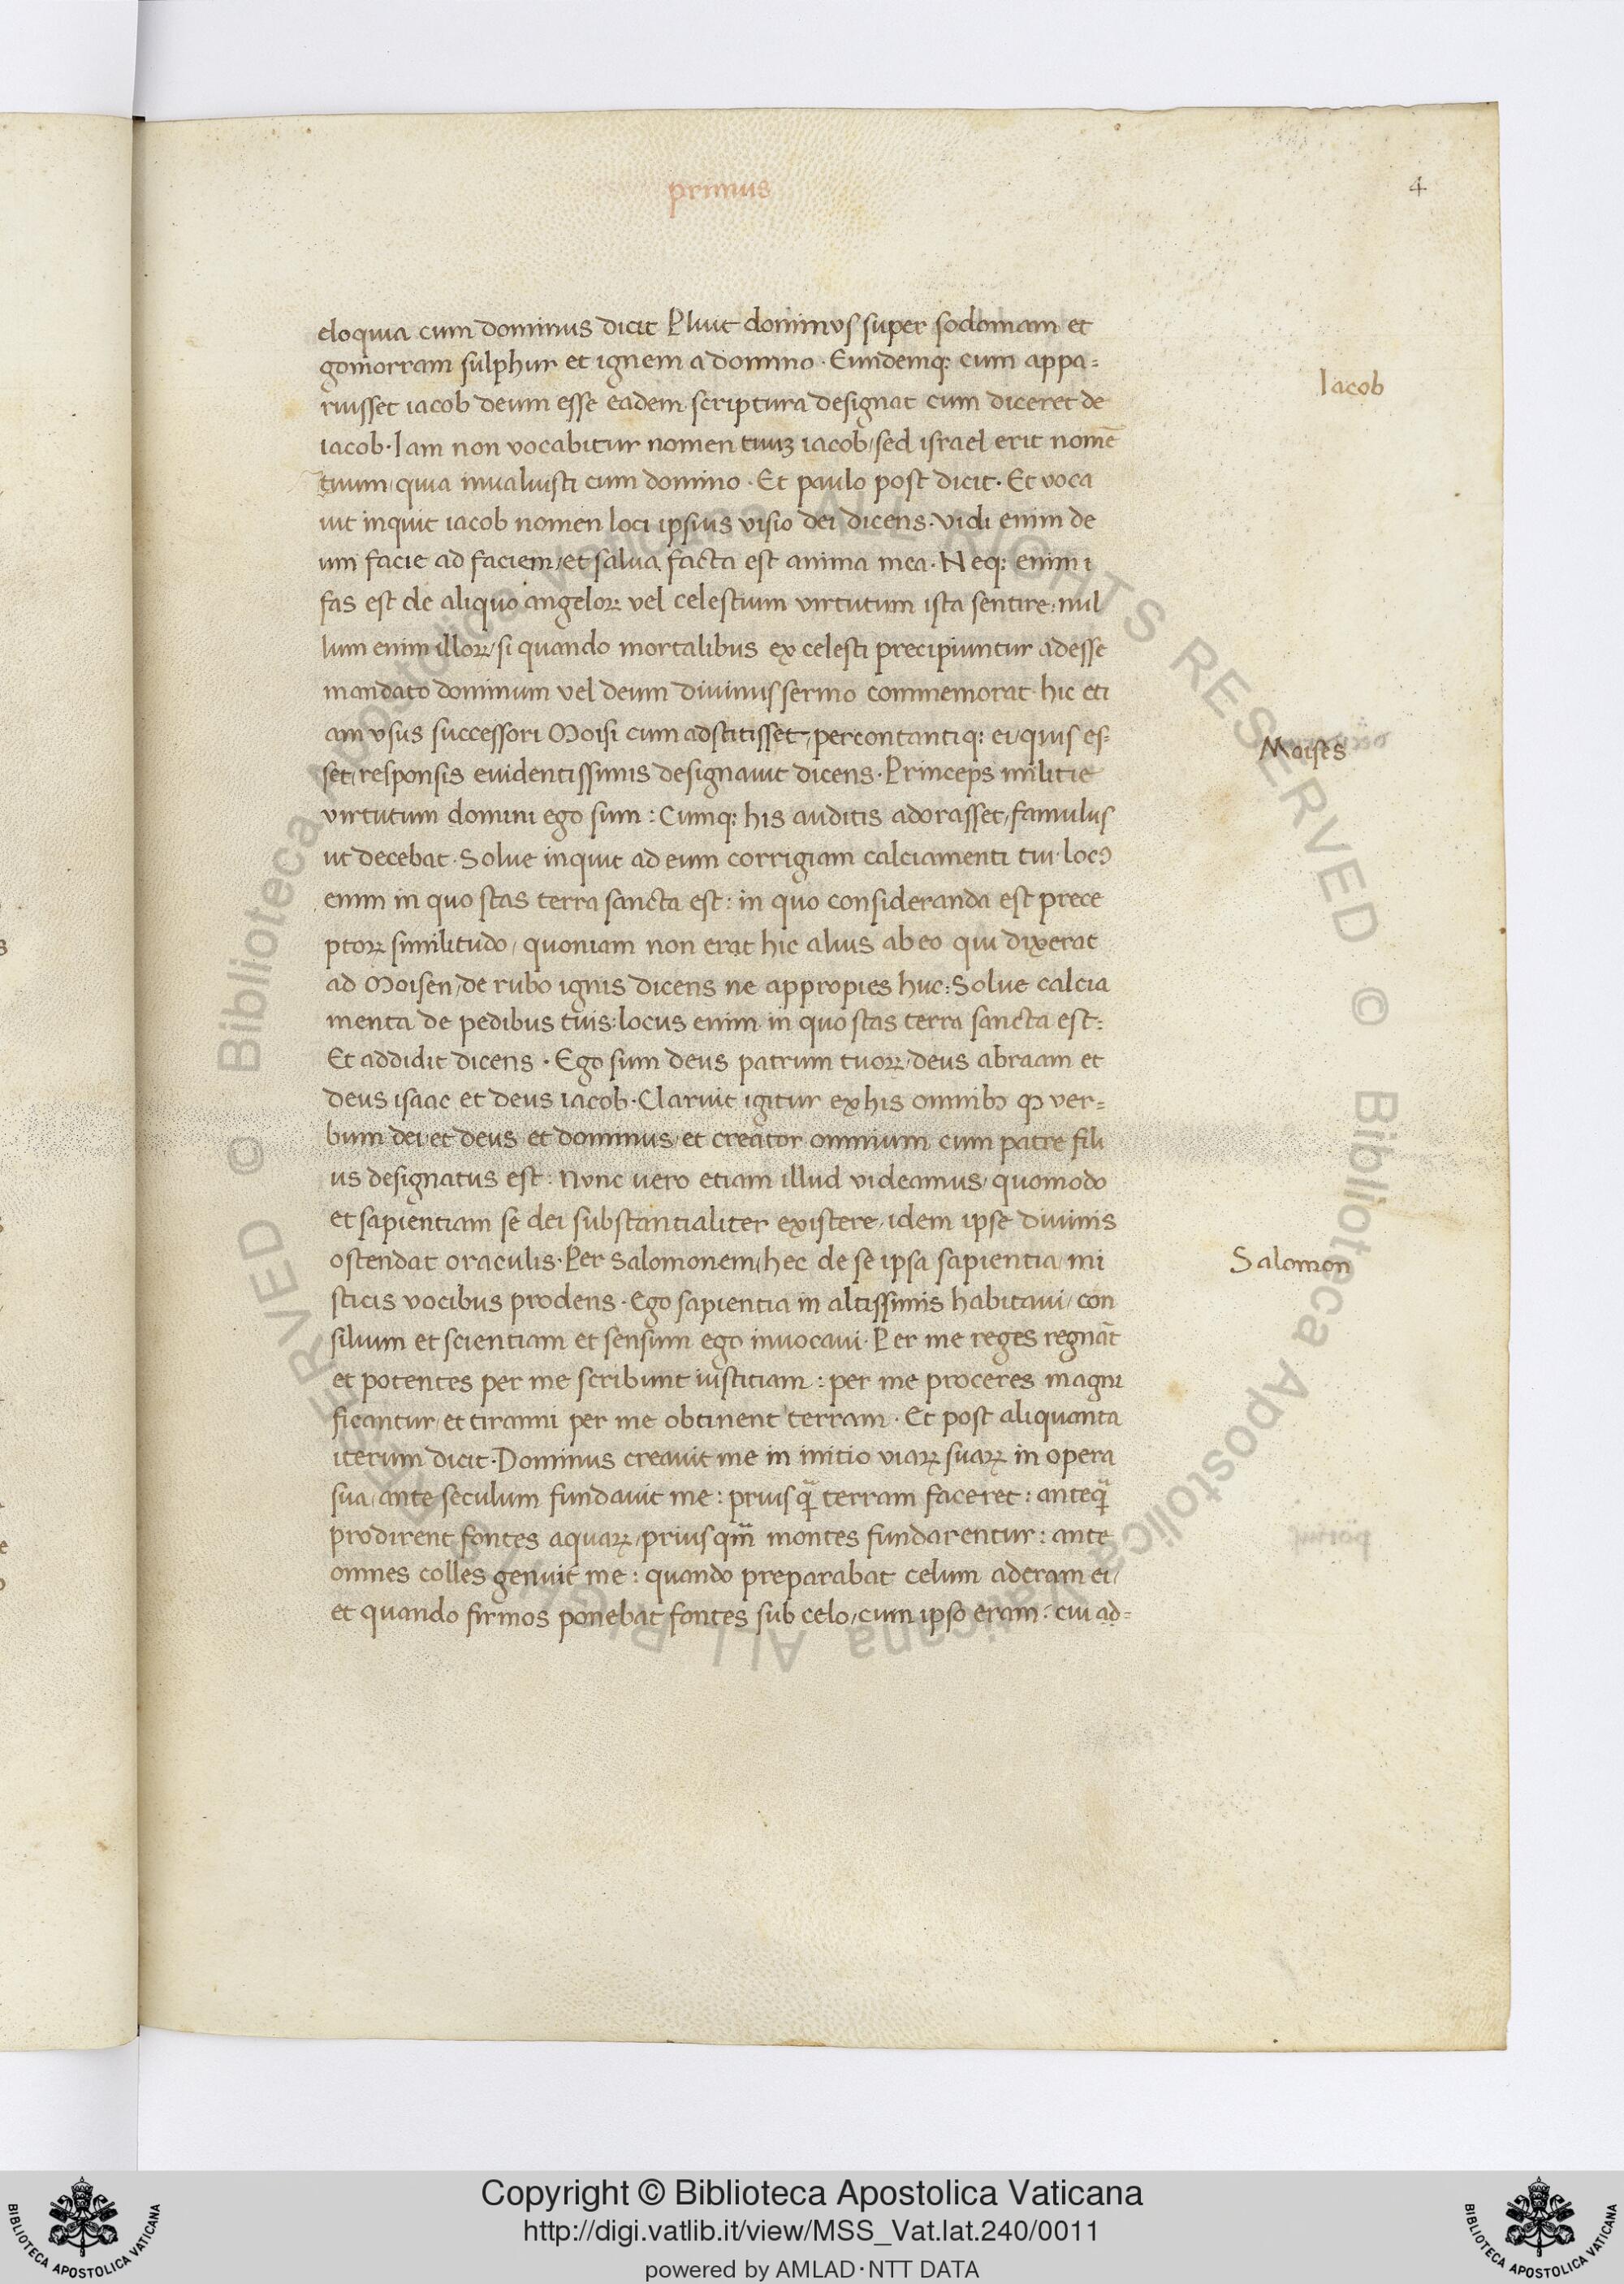 primus
4
eloquia cum dominus dicit Pluit dominus super sodomam et
gomorram sulphur et ignem a domino · Eundemq: cum appa-
ruisset iacob deum esse eadem scriptura designat cum diceret de
iacob · Iam non vocabitur nomen tuuȝ iacob / sed israel erit nomē
tuum / quia inualuisti cum domino · Et paulo post dicit · Et voca
uit inquit iacob nomen loci ipsius visio dei dicens · vidi enim de
um facie ad faciem / et salua facta est anima mea · Neq: enim
fas est de aliquo angeloꝝ vel celestium virtutum ista sentire : nul
lum enim illoꝝ / si quando mortalibus ex celesti precipiuntur adesse
mandato dominum vel deum diuinus sermo commemorat · hic eti
am usus successori Moisi cum adstitisset / percontantiq: ei / quis es-
set / responsis euidentissimis designauit dicens · Princeps militie
virtutum domini ego sum : Cumq: his auditis adorasset / famulus
ut decebat · Solue inquit ad eum corrigiam calciamenti tui · locꝰ
enim in quo stas terra sancta est : in quo consideranda est prece
ptoꝝ similitudo / quoniam non erat hic alius ab eo qui dixerat
ad Moisen / de rubo ignis dicens ne appropies huc : Solue calcia
menta de pedibus tuis : locus enim in quo stas terra sancta est :
Et addidit dicens · Ego sum deus patrum tuoꝝ / deus abraam et
deus isaac et deus iacob · Claruit igitur ex his omnibꝰ ꝙ ver-
bum dei / et deus et dominus / et creator omnium cum patre fili
us designatus est : Nunc uero etiam illud videamus / quomodo
et sapientiam se dei substantialiter existere / idem ipse diuinis
ostendat oraculis · Per Salomonem / hec de se ipsa sapientia / mi
sticis vocibus prodens · Ego sapientia in altissimis habitaui / con
silium et scientiam et sensum ego inuocaui · Per me reges regnāt
et potentes per me scribunt iustitiam : per me proceres magni
ficantur / et tiranni per me obtinent terram · Et post aliquanta
iterum dicit · Dominus creauit me in initio viaꝝ suaꝝ in opera
sua / ante seculum fundauit me : priusq̃ terram faceret : anteq̃
prodirent fontes aquaꝝ / priusqm̄ montes fundarentur : ante
omnes colles genuit me : quando preparabat celum aderam ei /
et quando firmos ponebat fontes sub celo / cum ipso eram : cui ad-
Iacob
Moises
Salomon
© Biblioteca Apostolica Vaticana ALL RIGHTS RESERVED
© Biblioteca Apostolica Vaticana ALL RIGHTS RESERVED
Copyright © Biblioteca Apostolica Vaticana
http://digi.vatlib.it/view/MSS_Vat.lat.240/0011
powered by AMLAD·NTT DATA
BIBLIOTECA APOSTOLICA VATICANA
BIBLIOTECA APOSTOLICA VATICANA